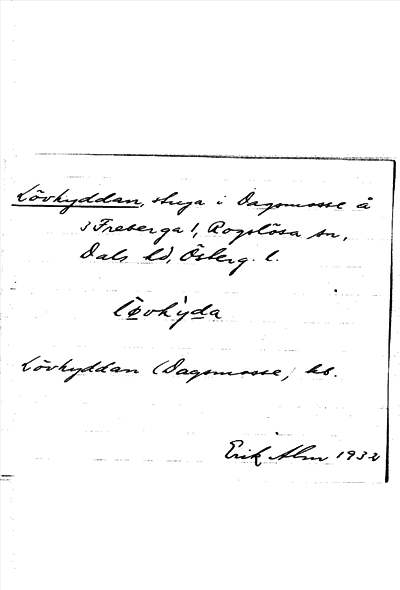 Lövhyddan, stuga i Dagsmosse å
3 Freberga 1, Rogslösa sn,
Dals hd, Österg. l.
lövhỳda
Lövhyddan (Dagsmosse) kb.
Erik Alm 1932